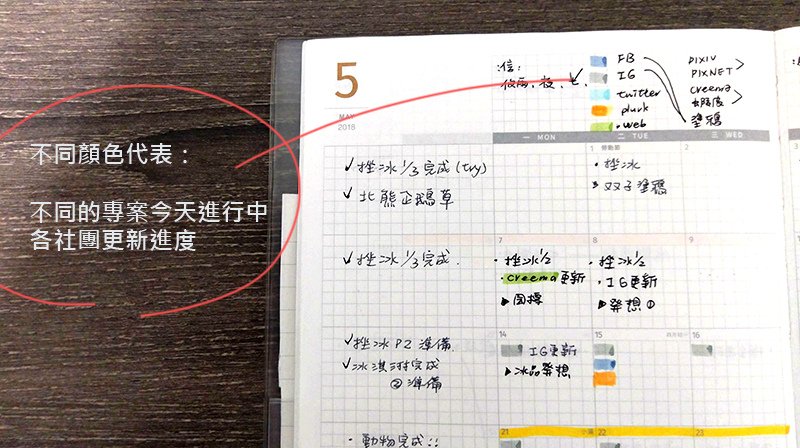 不同顏色代表：
不同的專案今天進行中
各社團更新進度
5
MAY
2018
FB
IG
twitter
plurk
·web
PIXIV
PIXNET
creema
塗鴉
一 MON
二 TUE
三 WED
✓挫冰1/3完成(try)
✓北熊企鵝草
1 勞動節
·挫冰
·双子塗鴉
2
✓挫冰1/3完成.
7
·挫冰1/2
·creema更新
▶圖標
8
·挫冰1/2
·IG更新
▶發想①
9
✓挫冰P2準備
✓冰淇淋完成
②準備
14
IG更新
▶冰品發想
15
16
·動物完成!!
21 小滿
22
23